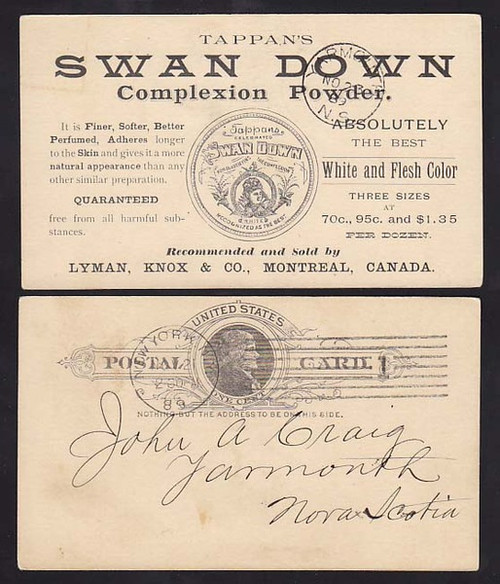 TAPPAN'S
SWAN DOWN
Complexion Powder.
YARMOUTH
NO 23
89
N.S
It is Finer, Softer, Better
Perfumed, Adheres longer
to the Skin and gives it a more
natural appearance than any
other similar preparation.
QUARANTEED
free from all harmful sub-
stances.
Tappan's
CELEBRATED
SWAN DOWN
RECOGNIZED AS THE BEST
ABSOLUTELY
THE BEST
White and Flesh Color
THREE SIZES
AT
70c., 95c. and $1.35
PER DOZEN.
Recommended and Sold by
LYMAN, KNOX & CO., MONTREAL, CANADA.
UNITED STATES
NEW YORK
89
POSTAL CARD. 1
ONE CENT
NOTHING BUT THE ADDRESS TO BE ON THIS SIDE.
John A Craig
Yarmouth
Nova Scotia